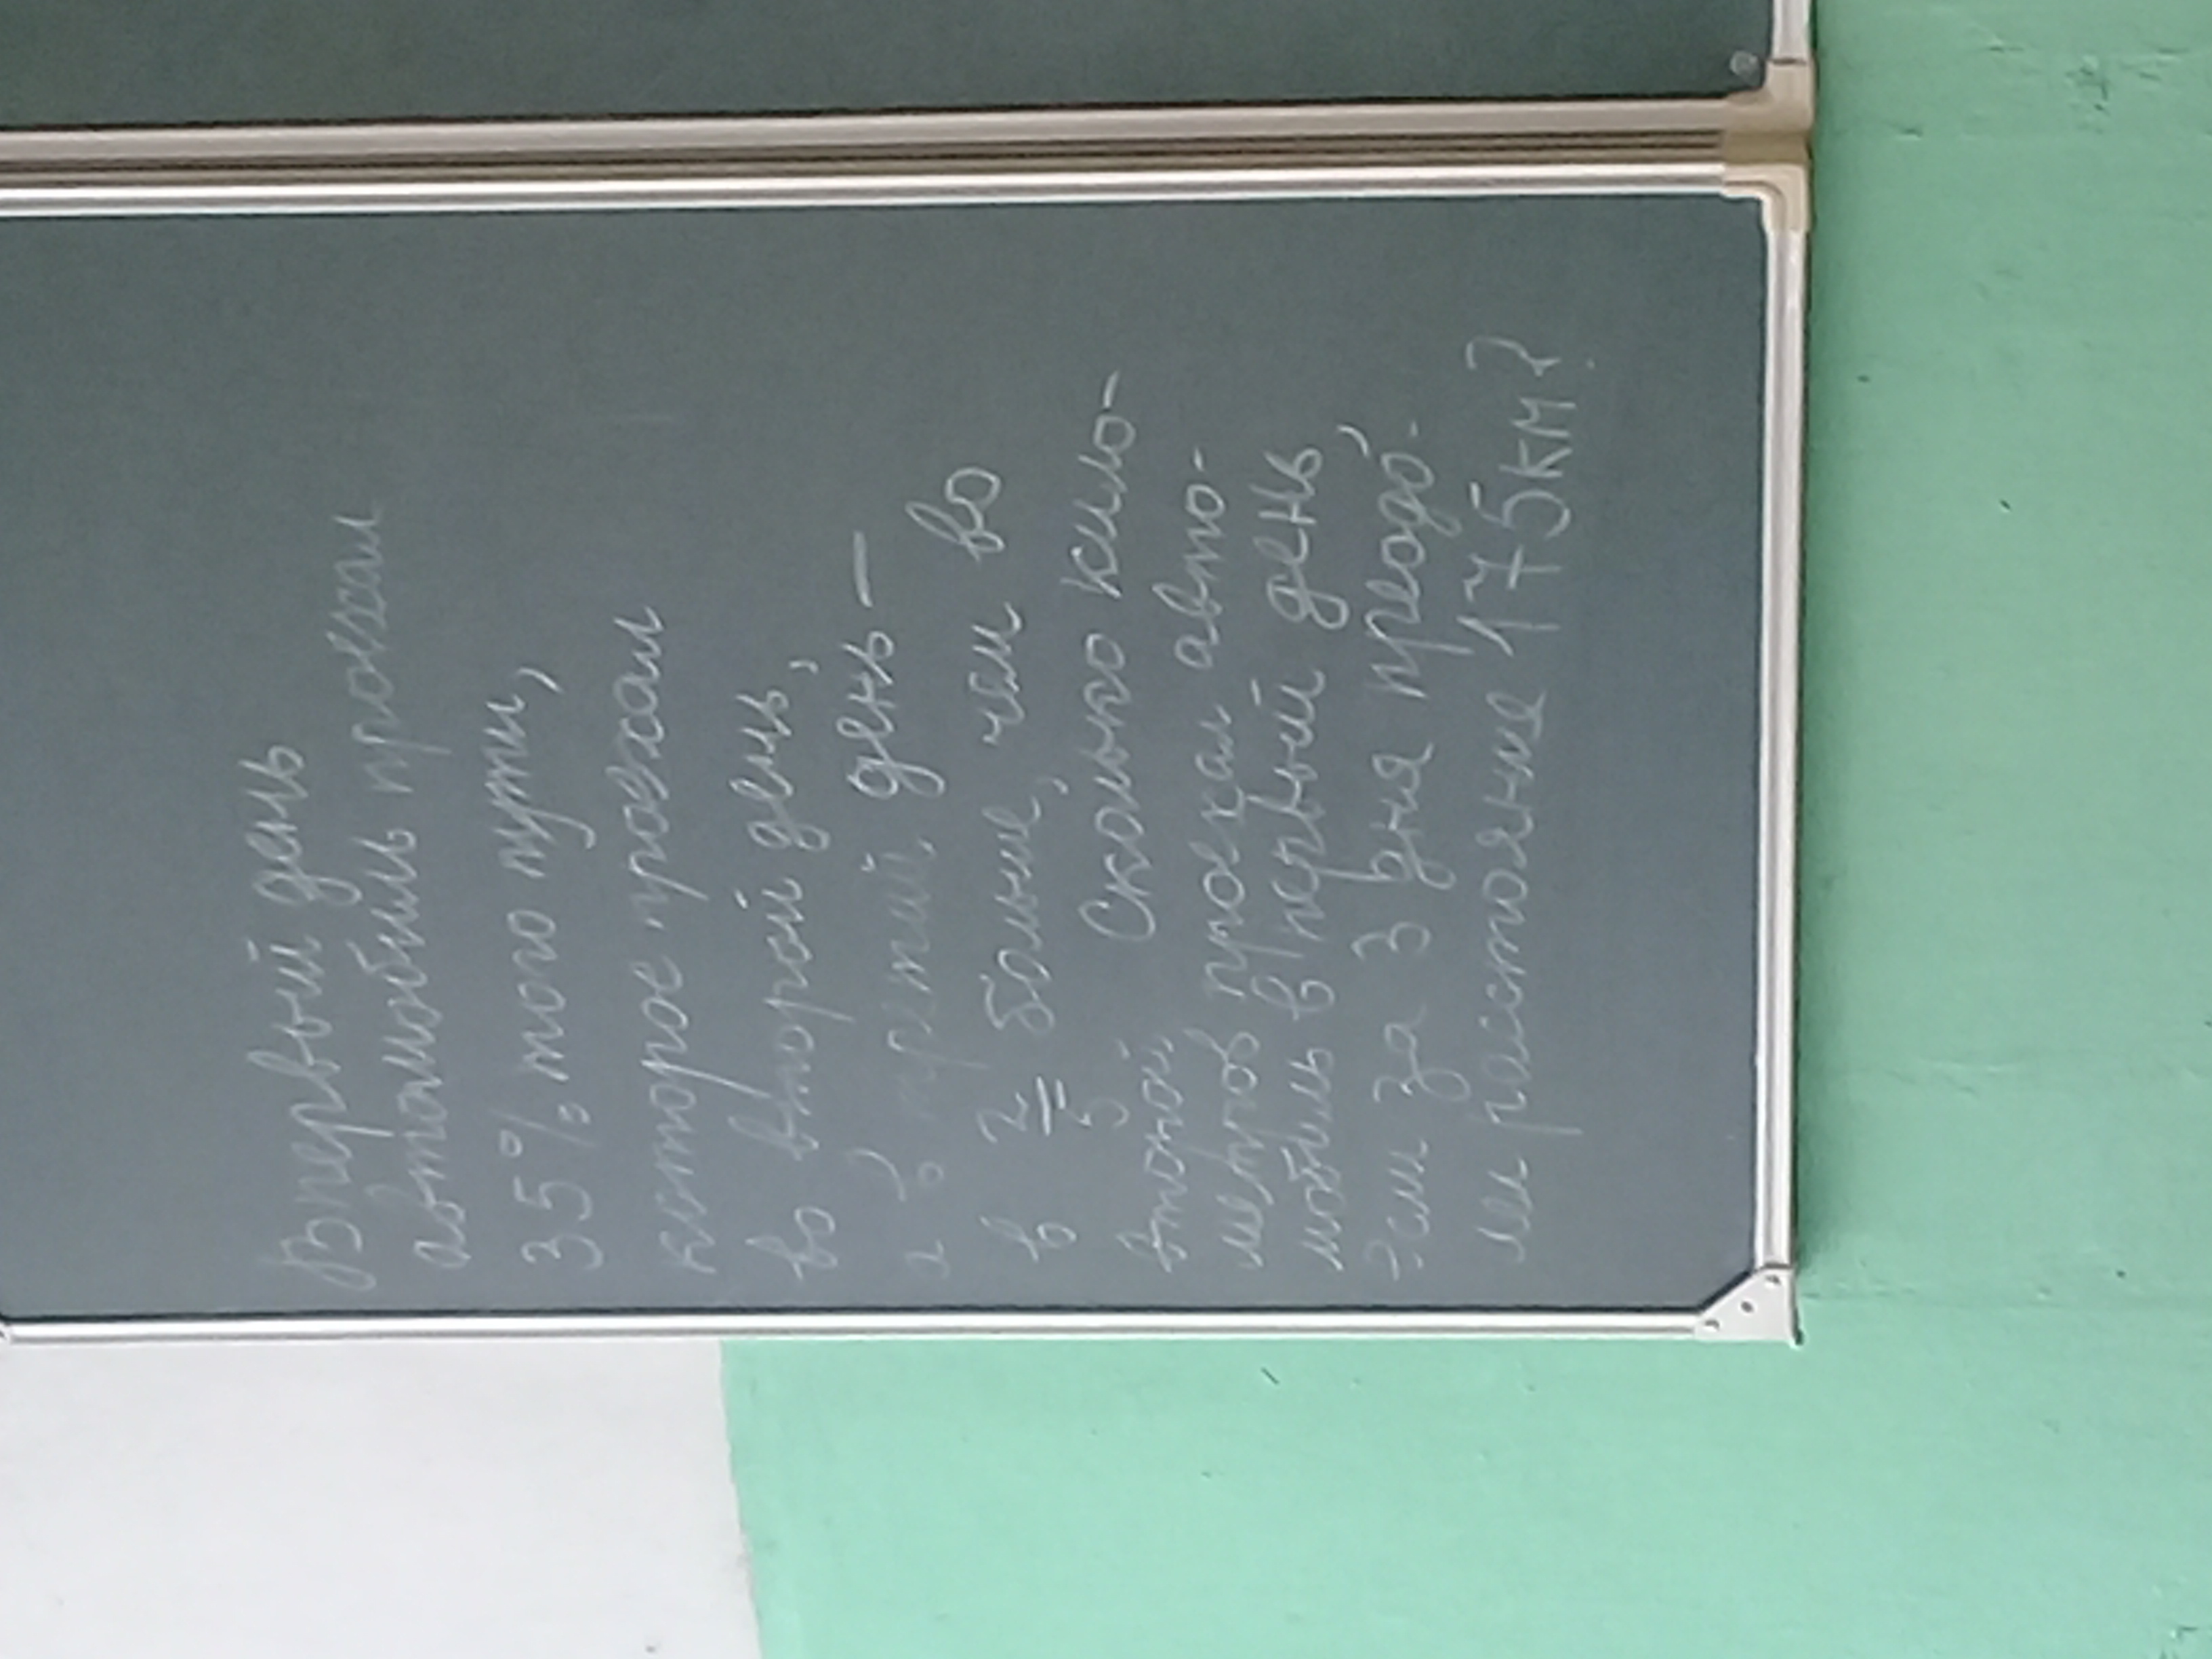 В первый день
автомобиль проехал
35% того пути,
которое проехал
во второй день,
а в третий день –
в 2/5 больше, чем во
второй. Сколько кило-
метров проехал авто-
мобиль в первый день,
если за 3 дня преодо-
ли расстояние 175км?